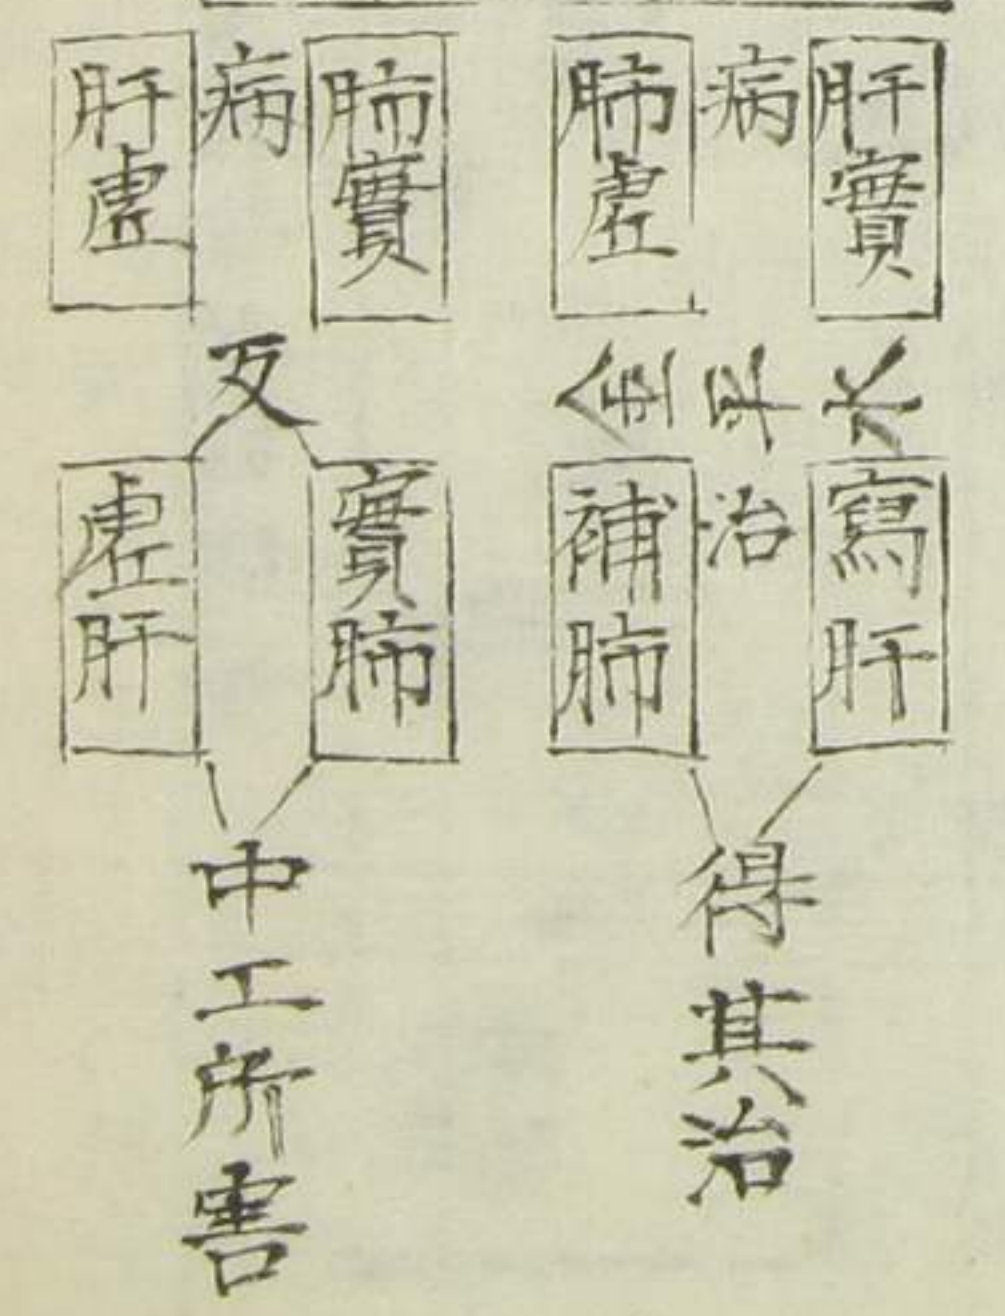 肝實
病
肺虛
金平木
寫肝
治
補肺
得其治
肺實
病
肝虛
反
實肺
虛肝
中工所害